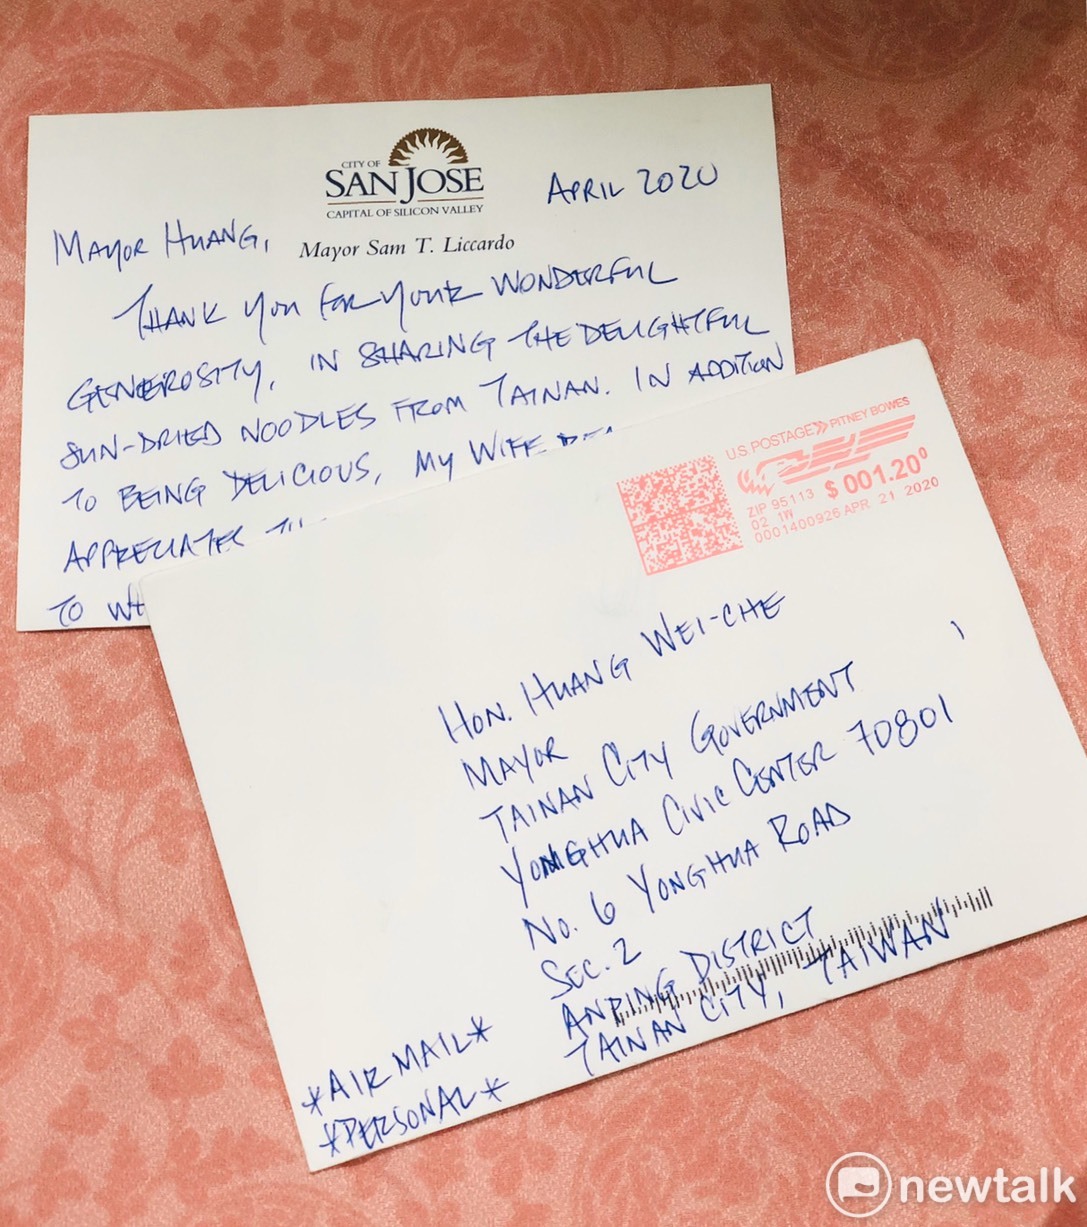 CITY OF
SAN JOSE
CAPITAL OF SILICON VALLEY
APRIL 2020
Mayor Sam T. Liccardo
MAYOR HUANG,
THANK YOU FOR YOUR WONDERFUL
GENEROSITY, IN SHARING THE DELIGHTFUL
SUN-DRIED NOODLES FROM TAINAN. IN ADDITION
TO BEING DELICIOUS, MY WIFE
APPRECIATES
TO
U.S. POSTAGE PITNEY BOWES
ZIP 95113 $ 001.20⁰
02 1W
0001400926 APR. 21 2020
HON. HUANG WEI-CHE
MAYOR
TAINAN CITY GOVERNMENT
YONGHUA CIVIC CENTER 70801
NO. 6 YONGHUA ROAD
SEC. 2
ANPING DISTRICT
TAINAN CITY, TAIWAN
*AIR MAIL*
*PERSONAL*
newtalk